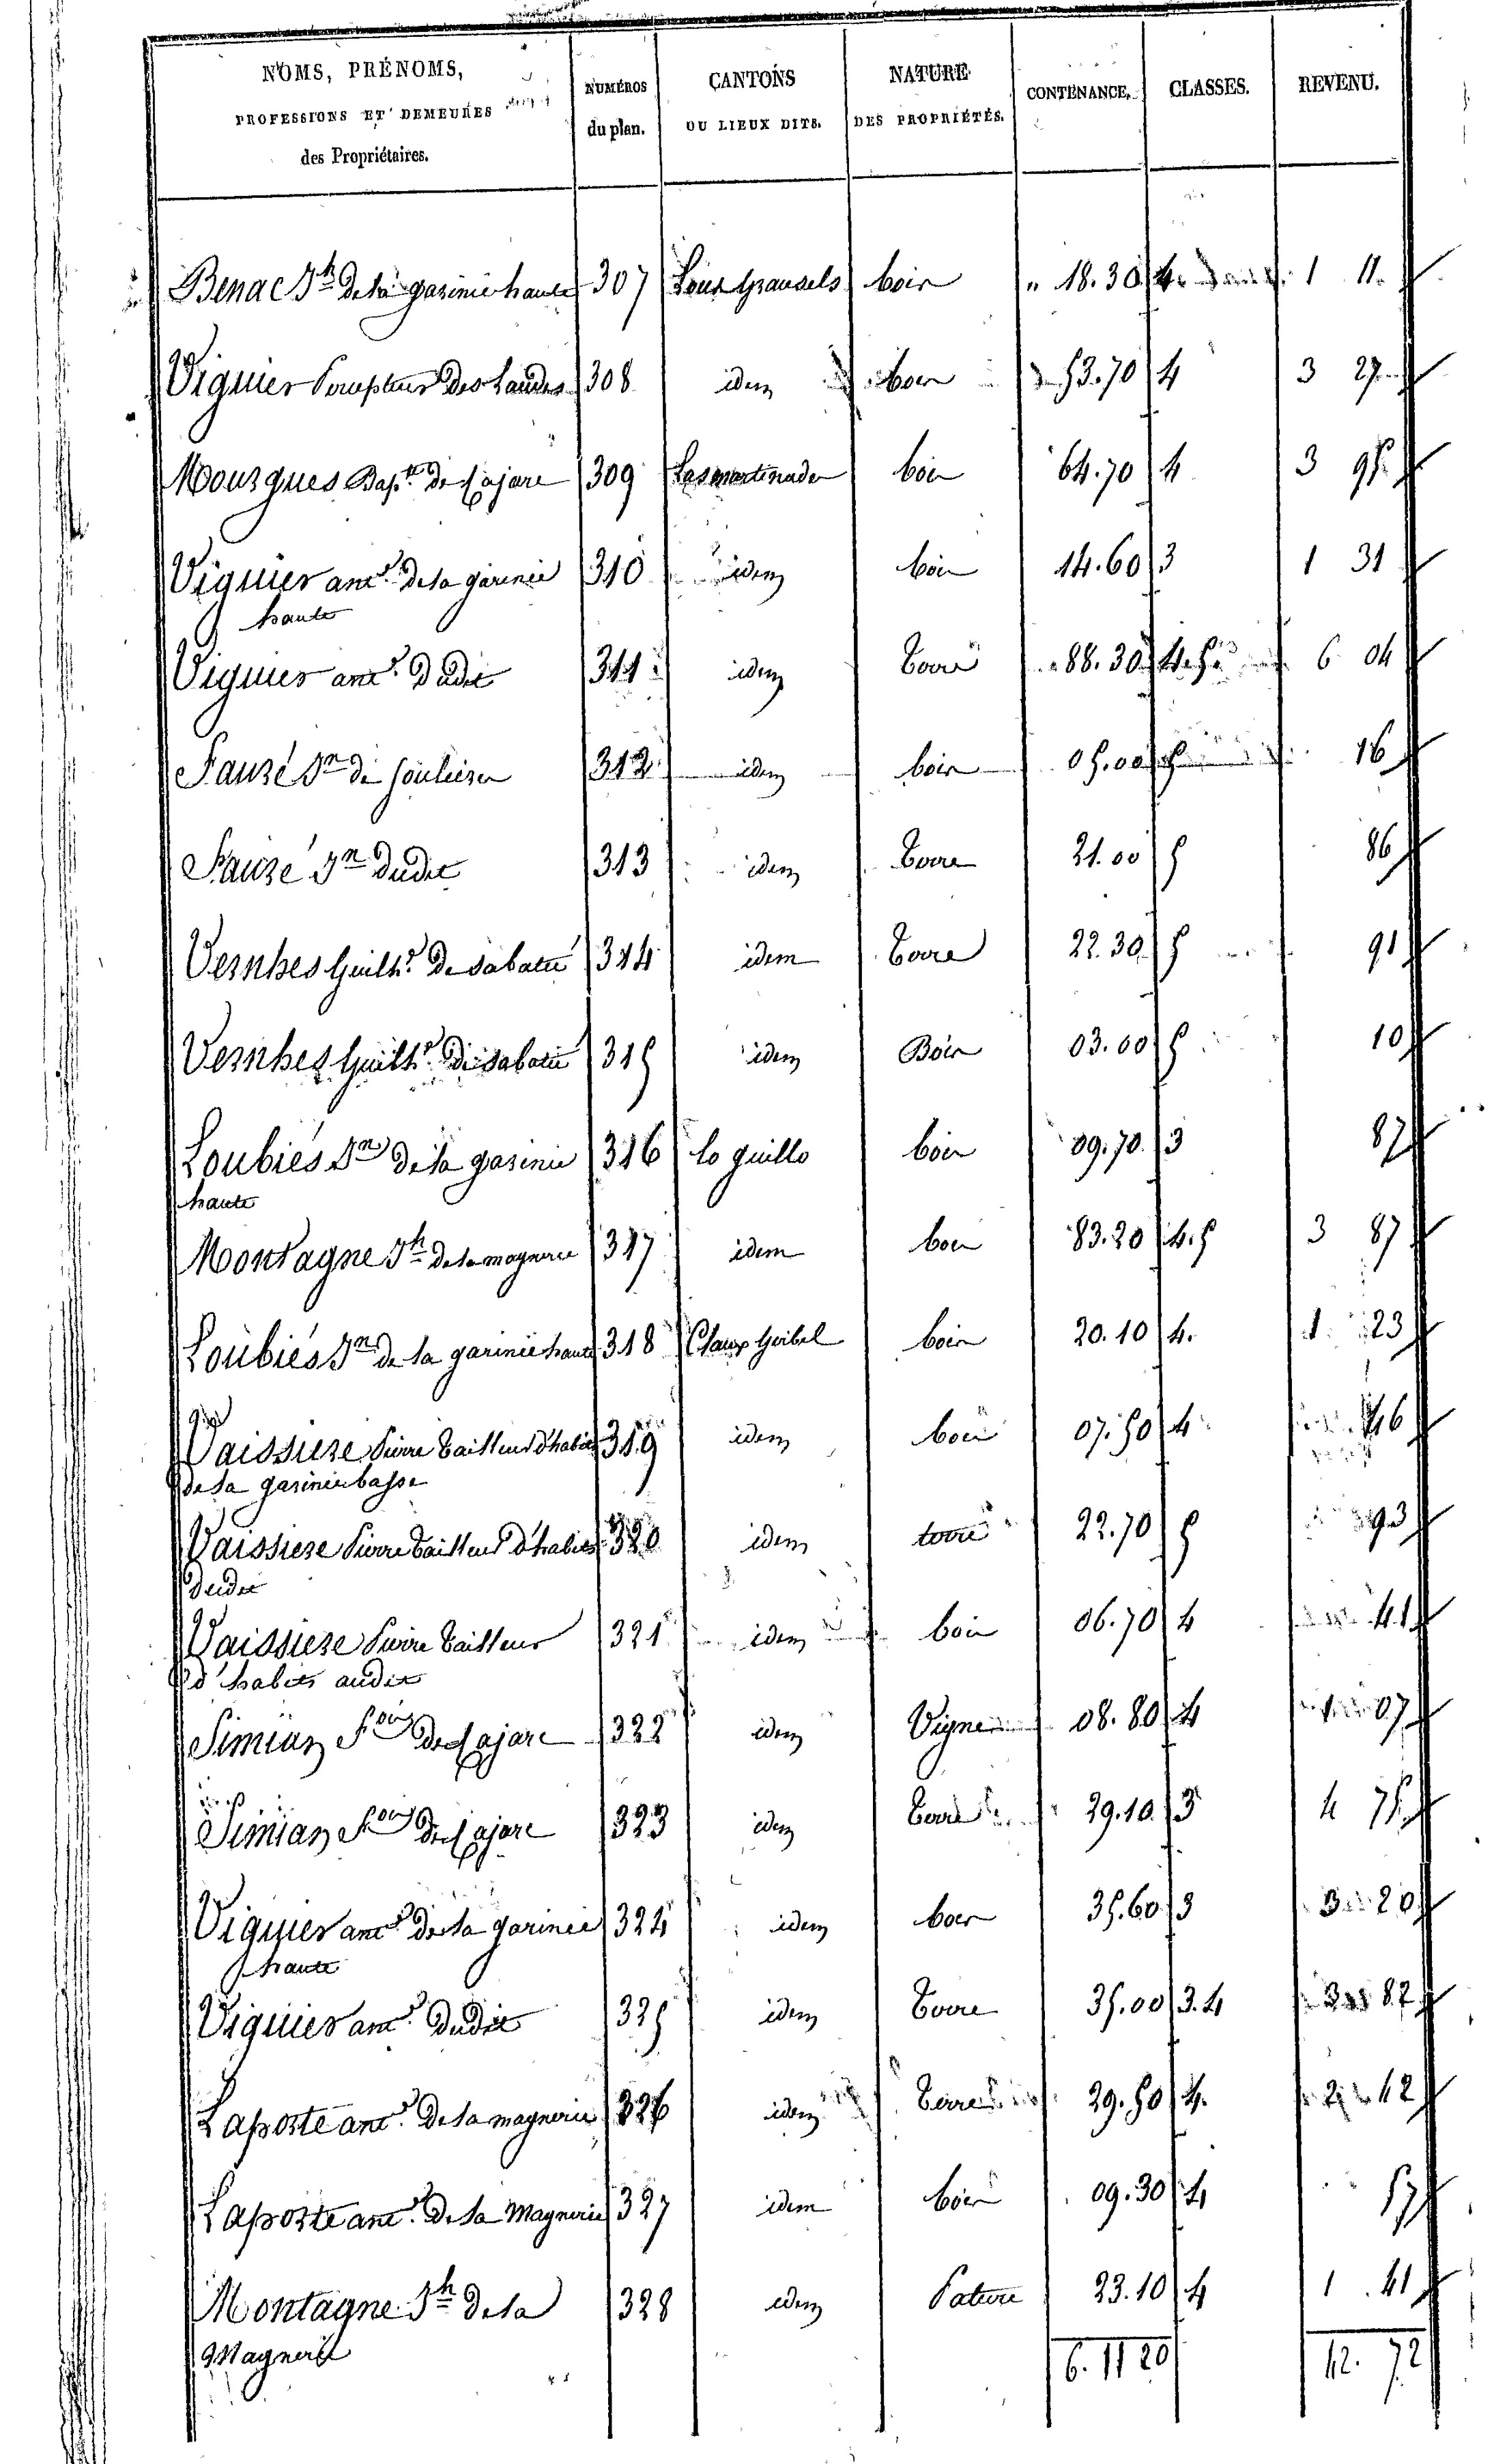 NOMS, PRÉNOMS, PROFESSIONS ET DEMEURES des Propriétaires. NUMÉROS du plan. CANTONS OU LIEUX DITS. NATURE DES PROPRIÉTÉS. CONTENANCE. CLASSES. REVENU.
Benac Jh de la garinie haute 307 Lous grausels bois " 18.30 4. 1 11
Viguier des Landes 308 idem bois 53.70 4 3 27
Mourgues Bapte de Cajarc 309 Las martinades bois 64.70 4 3 95
Viguier ante de la garinie 310 idem bois 14.60 3 1 31
haute
Viguier ante dudit 311 idem terre 88.30 4.5 6 04
Sauzé Jn de 312 idem bois 05.00 5 16
Sauzé Jn dudit 313 idem terre 21.00 5 86
Vernhes Guilhe de Sabatié 314 idem terre 22.30 5 91
Vernhes Guilhe de Sabatié 315 idem Bois 03.00 5 10
Loubiés Jn de la garinie 316 lo guillo bois 09.70 3 87
haute
Montagne Jh de la magnerie 317 idem bois 83.20 4.5 3 87
Loubiés Jn de la garinie haute 318 Claux bois 20.10 4. 1 23
Vaissiere Pierre tailleur d'habits 319 idem bois 07.50 4 46
de la garinie basse
Vaissiere Pierre tailleur d'habits 320 idem terre 22.70 5 93
dudit
Vaissiere Pierre tailleur 321 idem bois 06.70 4 41
d'habits audit
Simian fçois de Cajarc 322 idem Vigne 08.80 4 07
Simian fçois de Cajarc 323 idem terre 29.10 3 4 75
Viguier ante de la garinie 324 idem bois 35.60 3 3 20
haute
Viguier ante dudit 325 idem terre 35.00 3.4 3 87
Laporte ante de la magnerie 326 idem terre 29.50 4. 2 42
Laporte ante de la Magnerie 327 idem bois 09.30 4 57
Montagne Jh de la 328 idem Pature 23.10 4 1 41
Magnerie
6. 11 20 42. 72